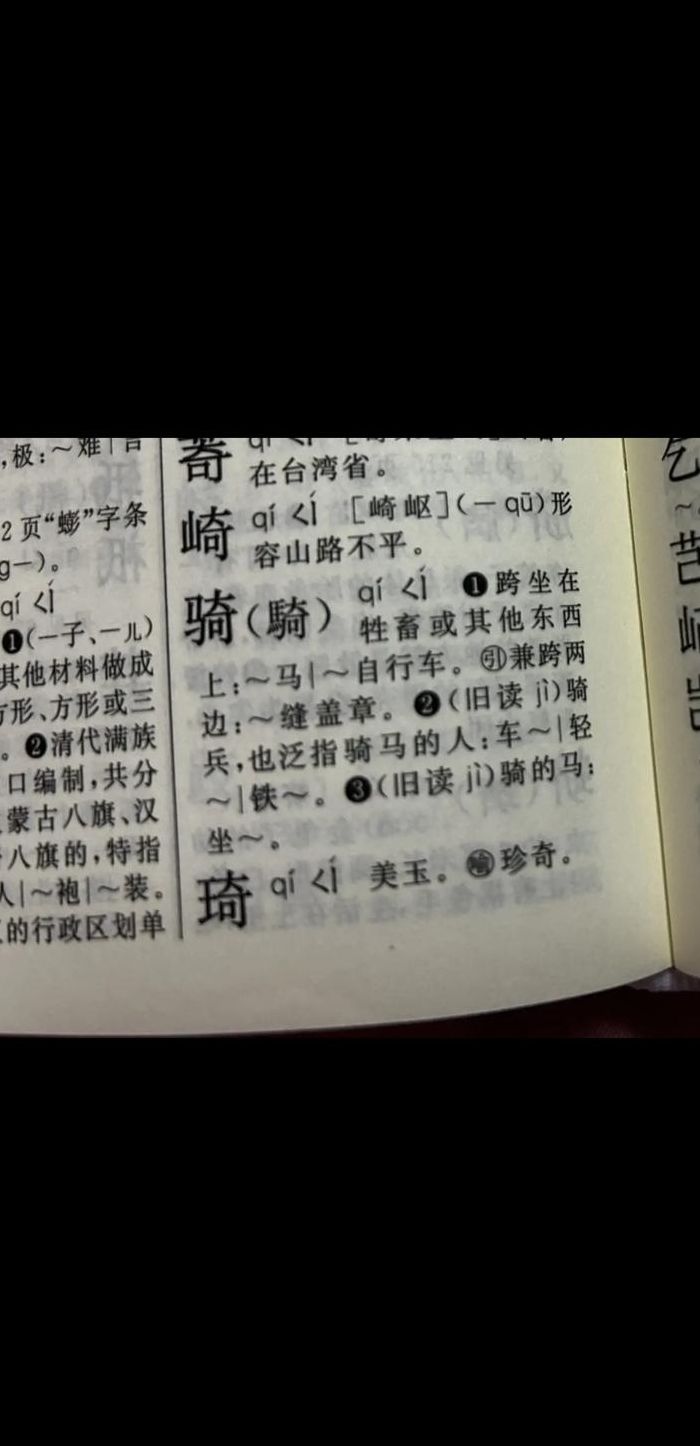 ,极:～难|
2页“蟛”字条
g一)。
qí ㄑㄧˊ
❶(一子、一儿)
其他材料做成
方形、方形或三
。❷清代满族
口编制,共分
蒙古八旗、汉
八旗的,特指
人|～袍|～装。
的行政区划单
在台湾省。
崎 qí ㄑㄧˊ [崎岖](一qū)形
容山路不平。
骑(騎) qí ㄑㄧˊ ❶跨坐在
牲畜或其他东西
上:～马|～自行车。㊇兼跨两
边:～缝盖章。❷(旧读 jì)骑
兵,也泛指骑马的人:车～|轻
～|铁～。❸(旧读 jì)骑的马:
坐～。
琦 qí ㄑㄧˊ 美玉。喻珍奇。